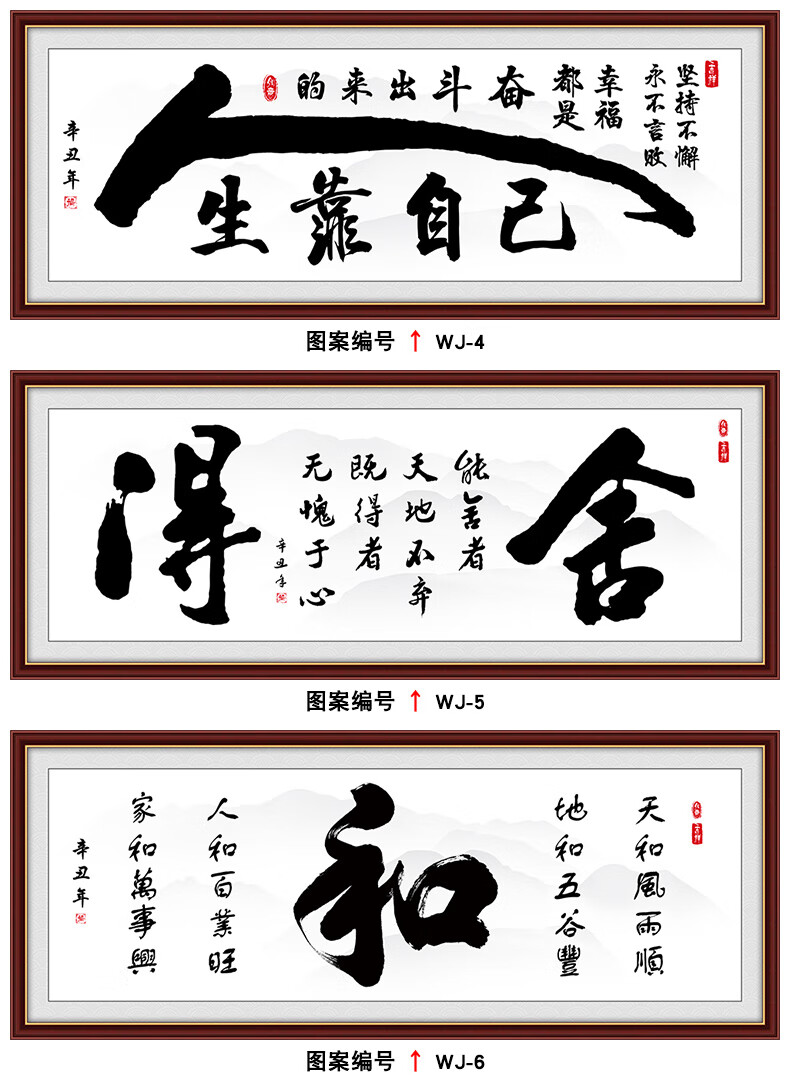 吉祥
坚持不懈
永不言败
幸福
都是
奋斗出来的
人
生靠自己
辛丑年
图案编号 ↑ WJ-4
吉祥
舍
能舍者
天地不弃
既得者
无愧于心
辛丑年
得
图案编号 ↑ WJ-5
吉祥
天和風雨順
地和五谷豐
和
人和百業旺
家和萬事興
辛丑年
图案编号 ↑ WJ-6